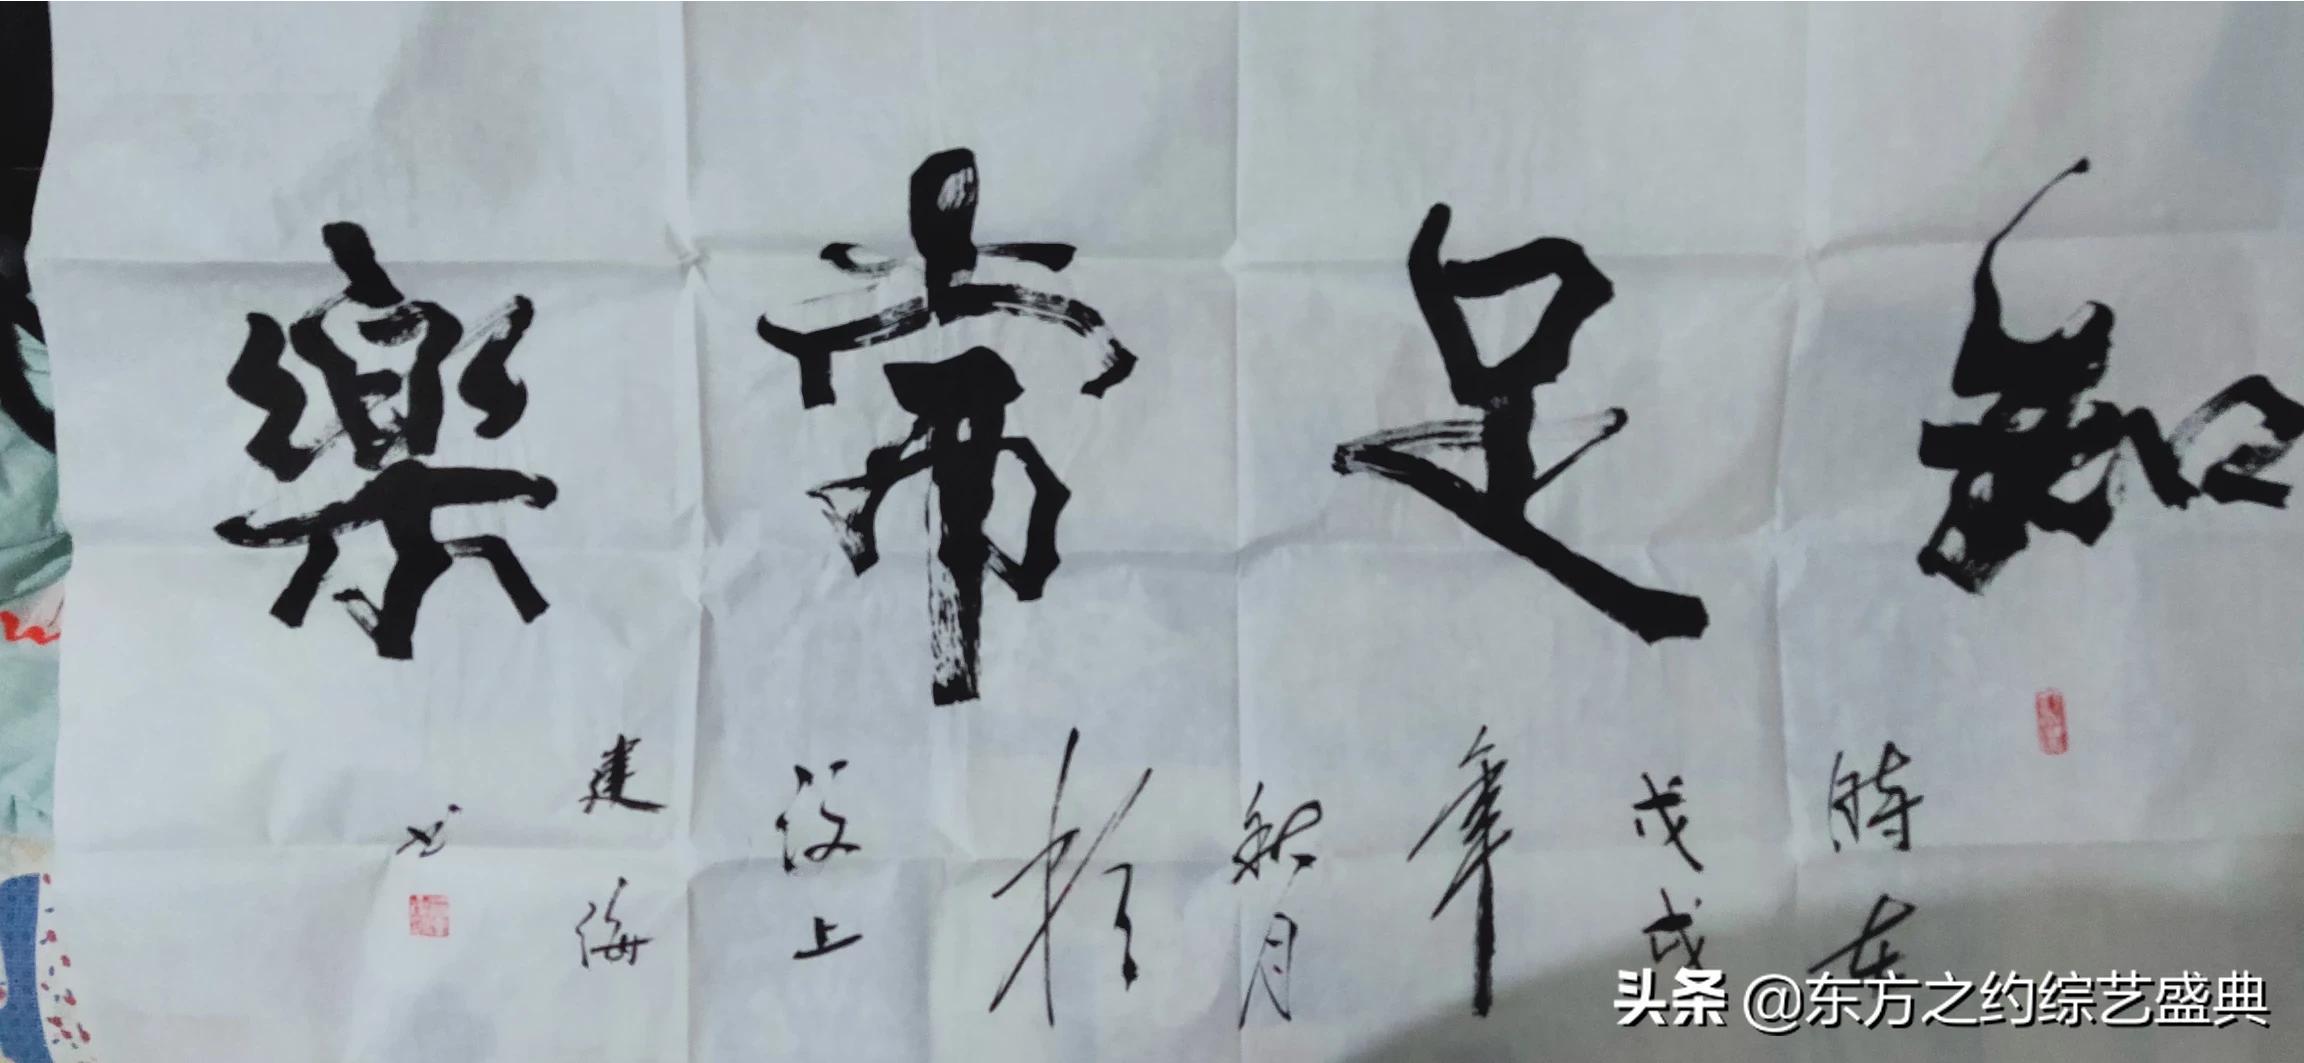 知足常樂
時在戊戌年秋月於汉上建海书
头条 @东方之约综艺盛典